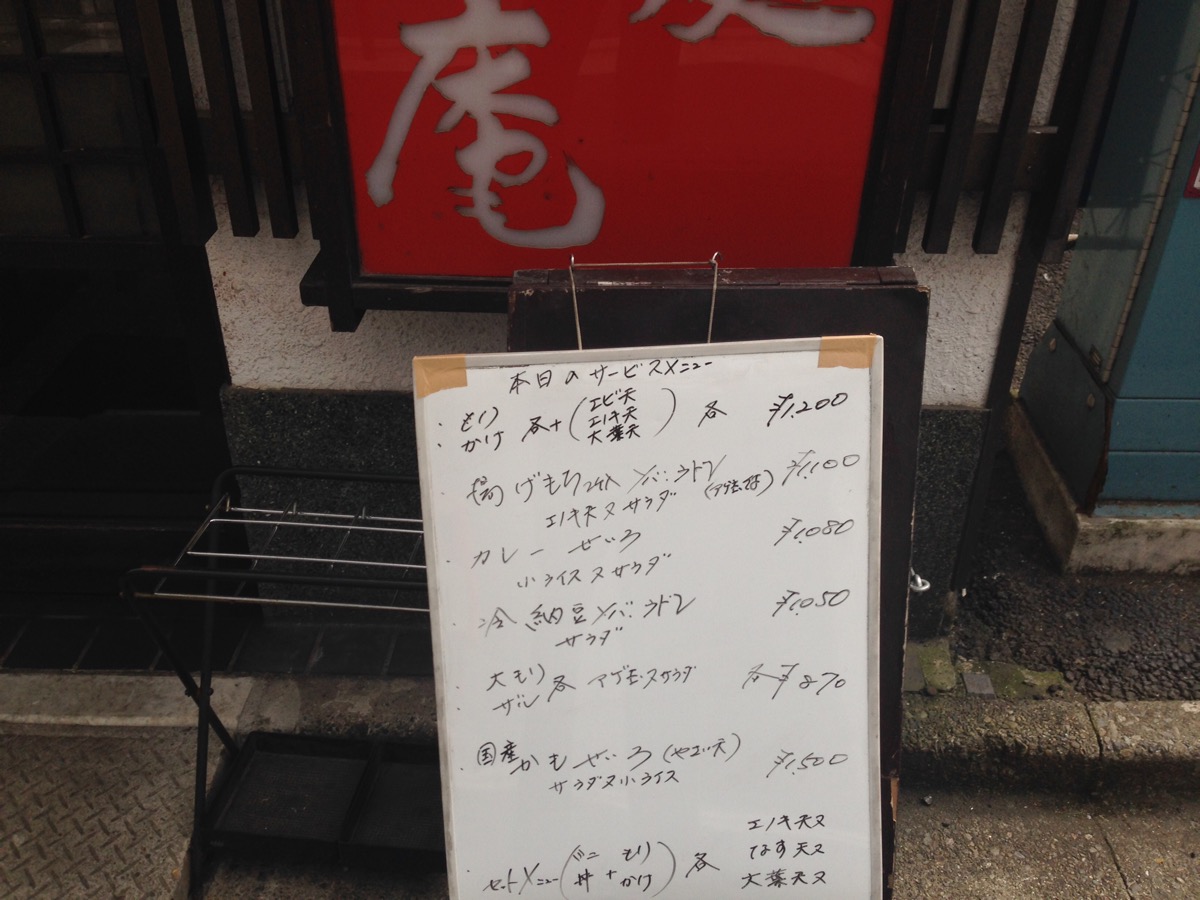 庵
本日のサービスメニュー
・もり
・かけ 各+(エビ天 エノキ天 大葉天) 各 ¥1.200
・揚げもち2ケ入 ソバ・ウドン ¥1.100
エノキ天又サラダ
・カレーせいろ ¥1.080
小ライス又サラダ
・冷納豆ソバ・ウドン ¥1.050
サラダ
・大もり
・ザル 各 アゲモ・スサラダ 各¥870
・国産かもせいろ ¥1.500
サラダ又小ライス
エノキ天又
なす天又
・セットメニュー(ミニ丼+もり かけ) 各 大葉天又